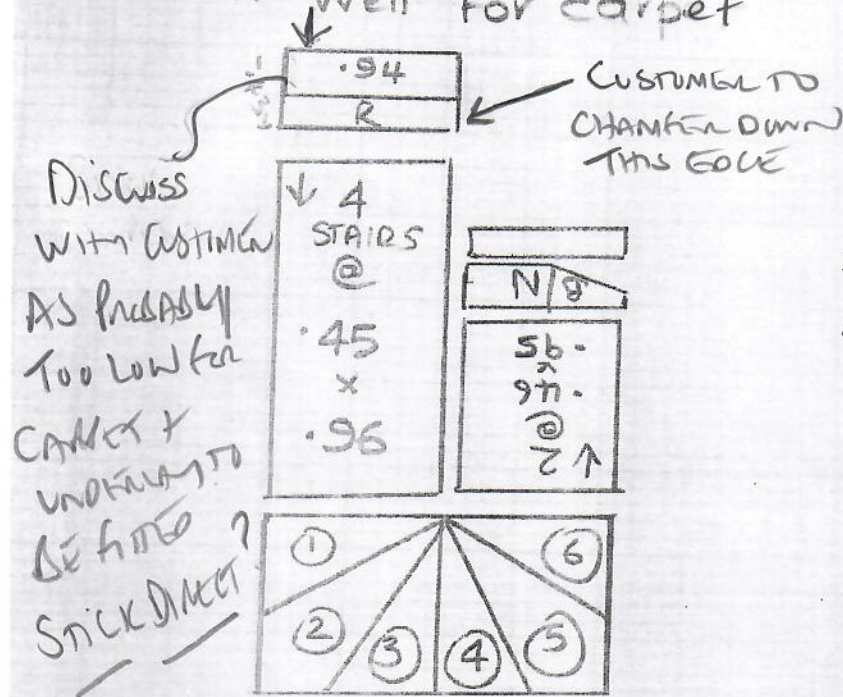 Well for carpet
.94
R
CUSTOMER TO
CHAMFER DOWN
THIS EDGE
DISCUSS
WITH CUSTOMER
AS PROBABLY
TOO LOW FOR
CARPET +
UNDERLAY TO
BE FITTED ?
STICK DIRECT
↓ 4
STAIRS
@
.45
x
.96
2
@
.46
x
.95
1
2
3
4
5
6